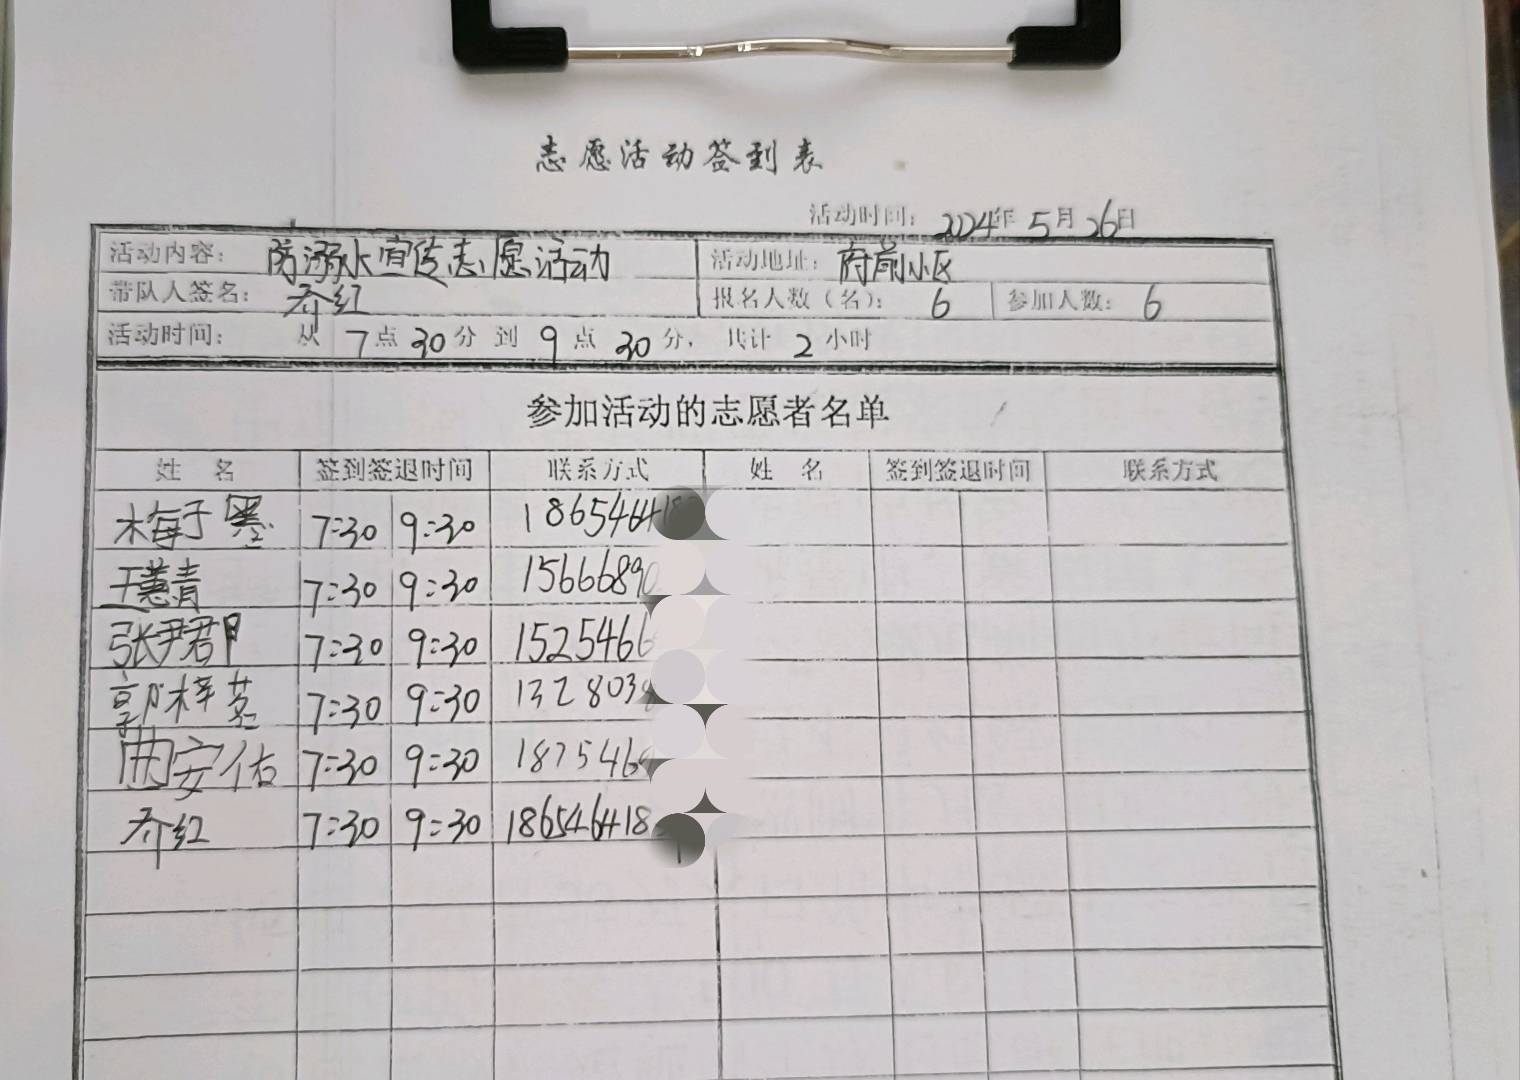 志愿活动签到表
活动时间：2024年5月26日
活动内容：防溺水宣传志愿活动 活动地址：府前小区
带队人签名：乔红 报名人数（名）：6 参加人数：6
活动时间：从7点30分到9点30分，共计2小时
参加活动的志愿者名单
姓名 签到签退时间 联系方式 姓名 签到签退时间 联系方式
梅子墨 7:30 9:30 186546418
王蕙青 7:30 9:30 15666890
张君 7:30 9:30 1525466
郭梓茗 7:30 9:30 132803
曲安佑 7:30 9:30 1875469
乔红 7:30 9:30 186546418